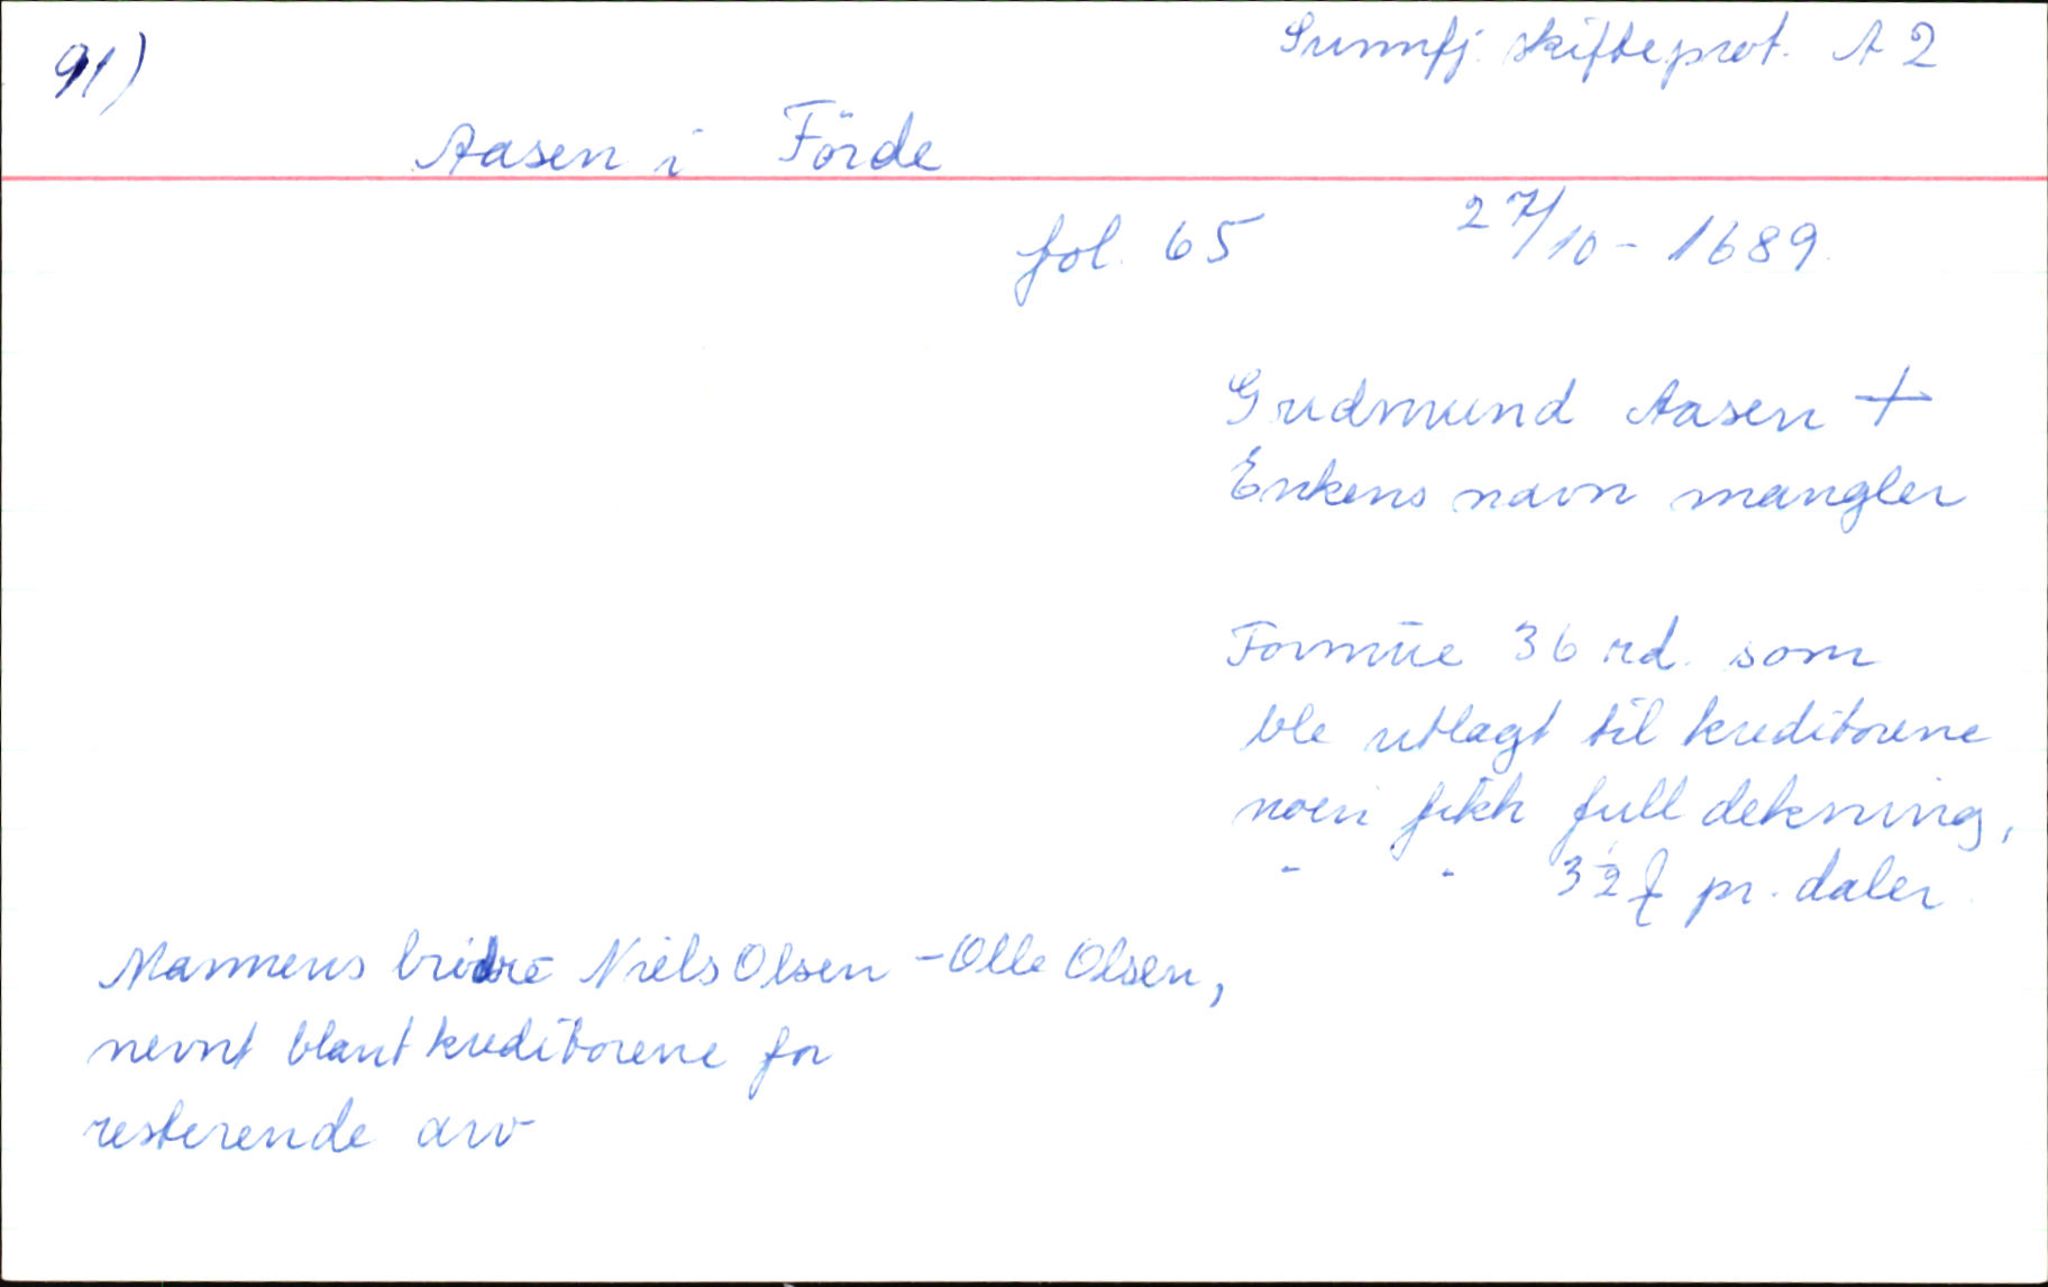 91)
Sunnfj. skifteprot. A 2
Aasen i Förde
fol. 65 27/10 - 1689.
Gudmund Aasen +
Enkens navn mangler
Formue 36 rd. som
ble utlagt til kreditorene
noen fikk full dekning,
" " 3½ ꝑ pr. daler
Mannens brödre Niels Olsen - Olle Olsen,
nevnt blant kreditorene for
resterende arv